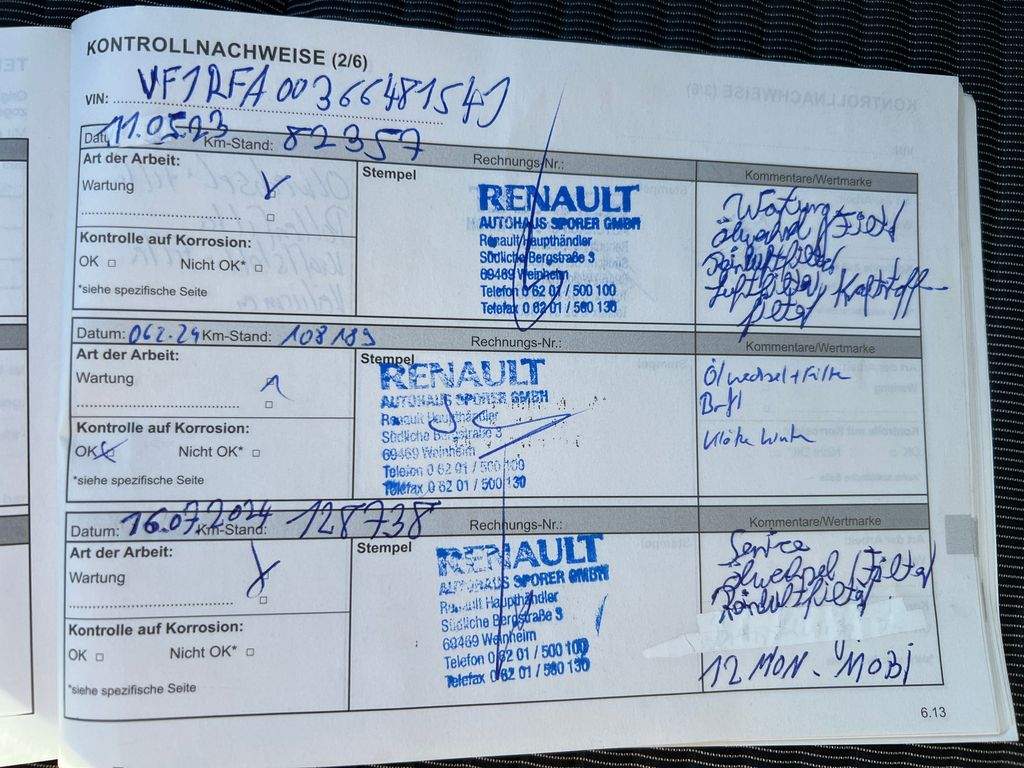 KONTROLLNACHWEISE (2/6)
VIN: VF1RFA00366481541
Datum: 11.05.23 Km-Stand: 82357
Rechnungs-Nr.:
Art der Arbeit:
Stempel
Kommentare/Wertmarke
Wartung
RENAULT
AUTOHAUS SPORER GMBH
Renault Haupthändler
Südliche Bergstraße 3
69469 Weinheim
Telefon 0 62 01 / 500 100
Telefax 0 62 01 / 500 130
Wartung
Ölwechsel / Filter
Luftfilter, Kraftstoff
filter
Kontrolle auf Korrosion:
OK Nicht OK*
*siehe spezifische Seite
Datum: 06.2.24 Km-Stand: 108189
Rechnungs-Nr.:
Art der Arbeit:
Stempel
Kommentare/Wertmarke
Wartung
RENAULT
AUTOHAUS SPORER GMBH
Renault Haupthändler
Südliche Bergstraße 3
69469 Weinheim
Telefon 0 62 01 / 500 100
Telefax 0 62 01 / 500 130
Ölwechsel + Filter
Kontrolle auf Korrosion:
OK Nicht OK*
*siehe spezifische Seite
Datum: 16.07.2024 Km-Stand: 128738
Rechnungs-Nr.:
Art der Arbeit:
Stempel
Kommentare/Wertmarke
Wartung
RENAULT
AUTOHAUS SPORER GMBH
Renault Haupthändler
Südliche Bergstraße 3
69469 Weinheim
Telefon 0 62 01 / 500 100
Telefax 0 62 01 / 500 130
Service
Ölwechsel / Filter
12 MON. MOBI
Kontrolle auf Korrosion:
OK Nicht OK*
*siehe spezifische Seite
6.13